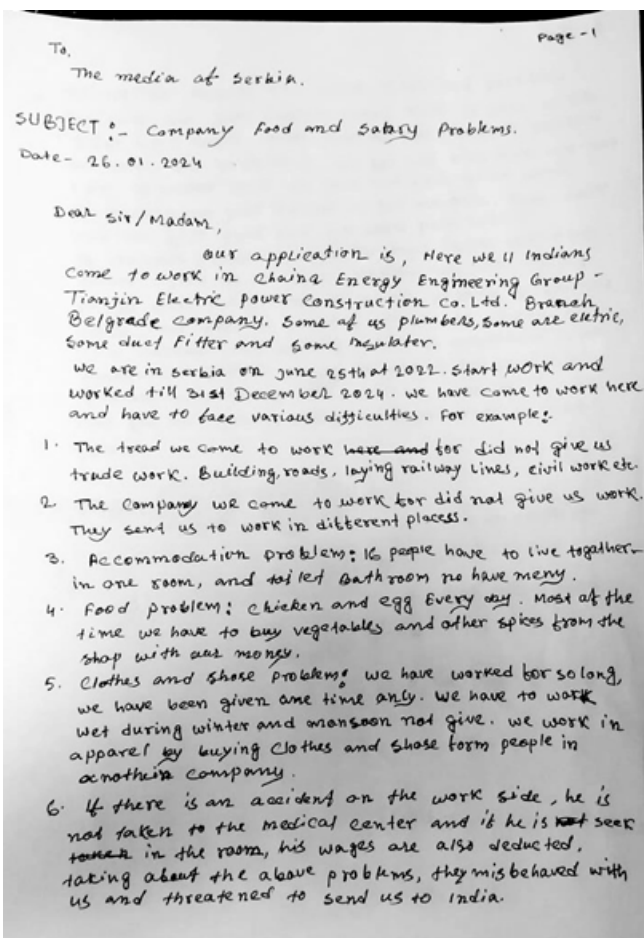 Page - 1
To,
The media of Serbia.
SUBJECT :- Company Food and Salary Problems.
Date - 26.01.2024
Dear Sir/Madam,
our application is, Here we 11 Indians
Come to work in Chaina Energy Engineering Group -
Tianjin Electric power Construction Co. Ltd. Branah,
Belgrade company. Some of us plumbers, Some are eletric,
Some duct Fitter and some Insulater.
We are in serbia on june 25th at 2022. Start work and
worked till 31st December 2024. we have come to work here
and have to face various difficulties. For example:-
1. The tread we come to work here and for did not give us
trade work. Building, roads, laying railway lines, civil work etc.
2. The Company we come to work for did not give us work.
They sent us to work in different placess.
3. Accommodation problem: 16 people have to live togather
in one room, and toilet Bathroom no have meny.
4. Food problem: chicken and egg Every day. Most of the
time we have to buy vegetables and other spices from the
shop with our money.
5. Clothes and shose problem: we have worked for so long,
we have been given one time only. we have to work
wet during winter and monsoon not give. we work in
apparel by buying Clothes and shose form people in
company.
6. If there is an accident on the work side, he is
not taken to the medical center and if he is not seek
taken in the room, his wages are also deducted,
taking about the above problems, they misbehaved with
us and threatened to send us to India.